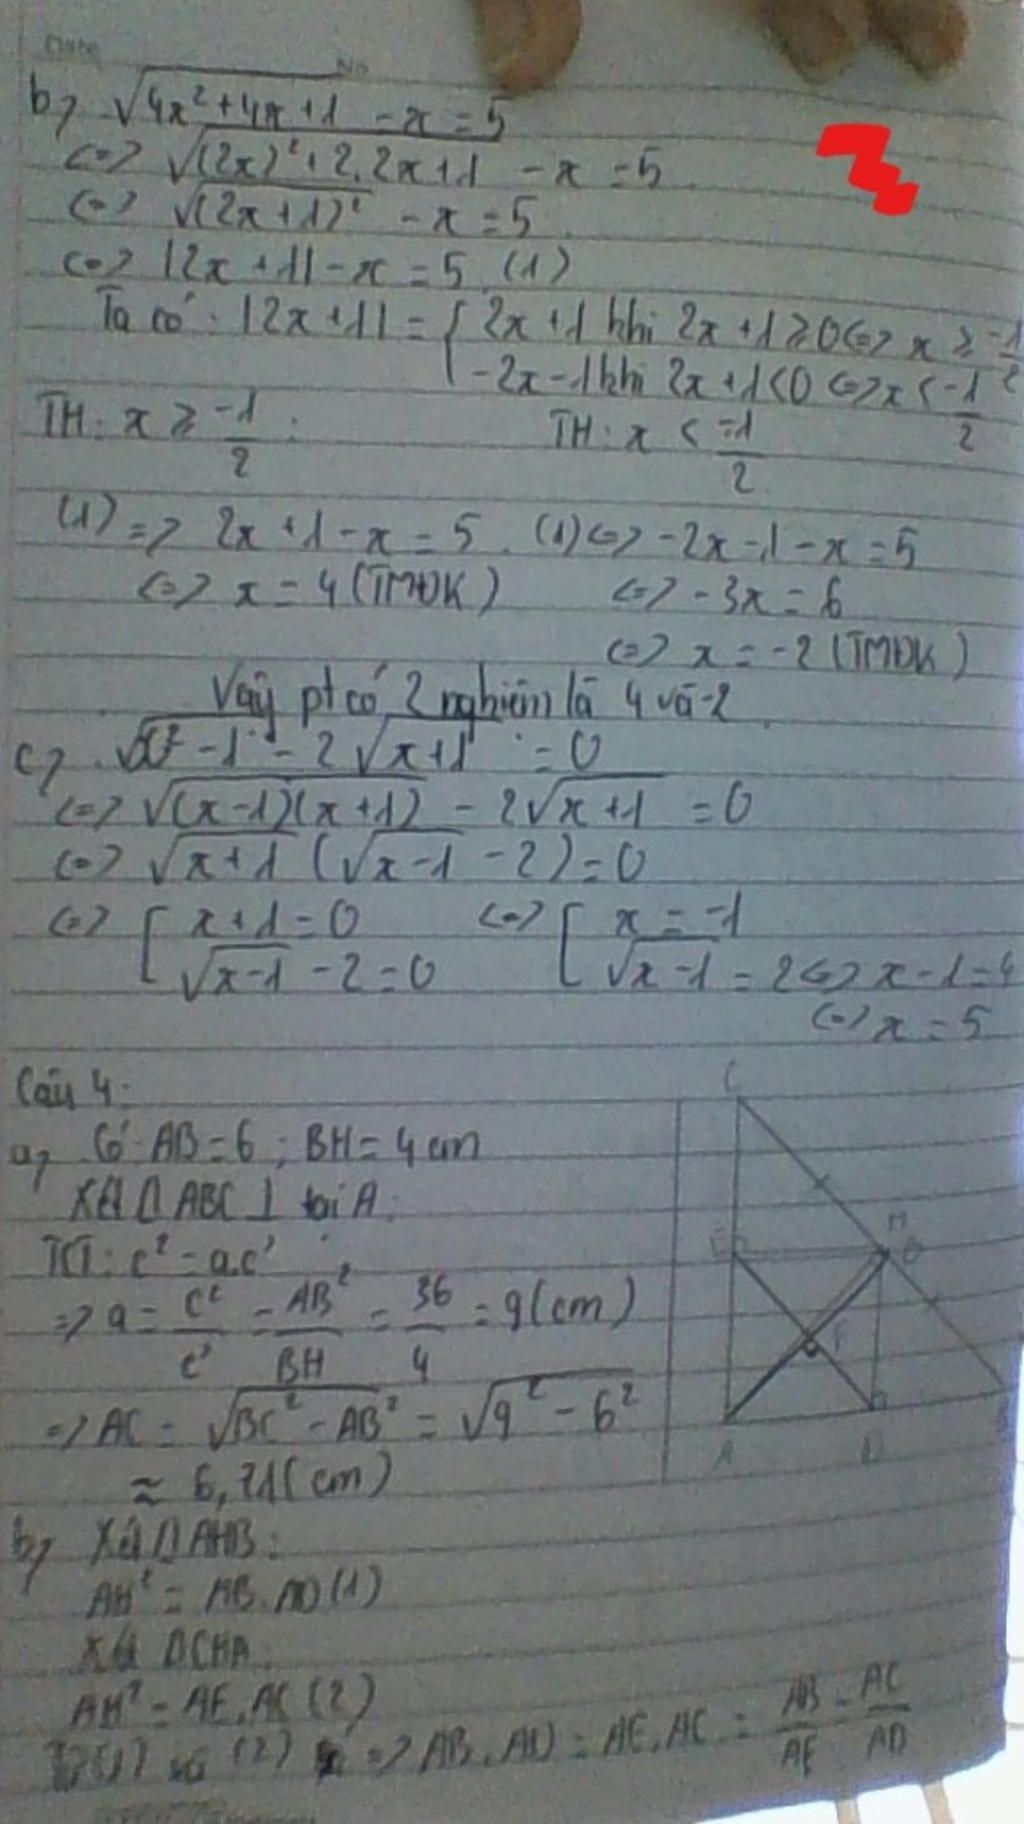 Date No
b) √(4x²+4x+1) - x = 5
<=> √((2x)²+2.2x+1) - x = 5
<=> √((2x+1)²) - x = 5
<=> |2x+1| - x = 5 (1)
Ta có: |2x+1| = { 2x+1 khi 2x+1≥0 <=> x ≥ -1/2
-2x-1 khi 2x+1<0 <=> x < -1/2
TH: x ≥ -1/2 : TH: x < -1/2
(1) => 2x+1-x = 5. (1) <=> -2x-1-x = 5
<=> x = 4 (TMĐK) <=> -3x = 6
<=> x = -2 (TMĐK)
Vậy pt có 2 nghiệm là 4 và -2
c) √(x²-1) - 2√(x+1) = 0
<=> √((x-1)(x+1)) - 2√(x+1) = 0
<=> √(x+1) (√(x-1) - 2) = 0
<=> [ x+1 = 0 <=> [ x = -1
√(x-1) - 2 = 0 √(x-1) = 2 <=> x-1 = 4
<=> x = 5
Câu 4:
a) Có AB = 6 ; BH = 4 cm
Xét Δ ABC ⊥ tại A:
TCT: c² = a.c'
=> a = c²/c' = AB²/BH = 36/4 = 9 (cm)
=> AC = √(BC² - AB²) = √(9² - 6²)
≈ 6,71 (cm)
b) Xét Δ AHB:
AH² = AB.AD (1)
Xét Δ CHA:
AH² = AE.AC (2)
Từ (1) và (2) => AB.AD = AE.AC = AB/AE = AC/AD
C
H
E
F
A
D